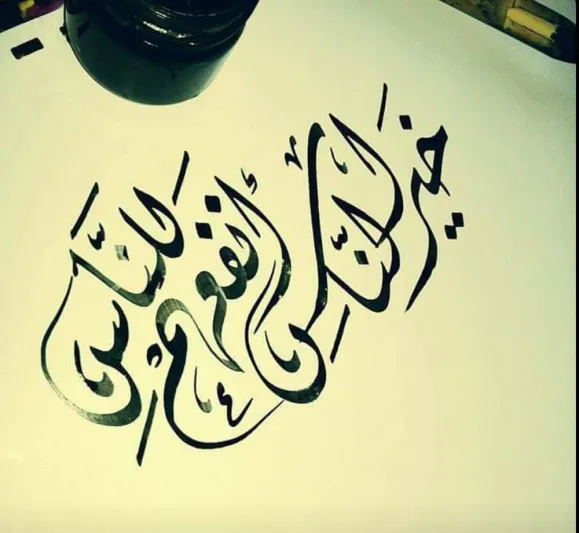 خير الناس أنفعهم للنَّاس